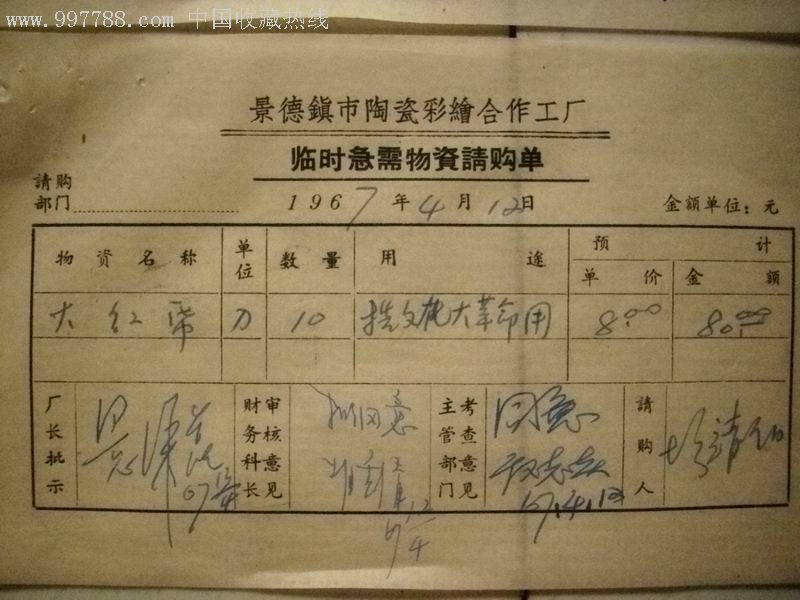 www.997788.com 中国收藏热线
景德鎭市陶瓷彩繪合作工厂
临时急需物資請购单
請购部门
1967年4月12日
金额单位：元
物資名称 单位 数量 用途 预计
单价 金额
大红帋 刀 10 搞文化大革命用 8.00 80.00
厂长批示
财务科长审核意见
拟同意
12/4
主管部门考查意见
同意
67.4.12
請购人